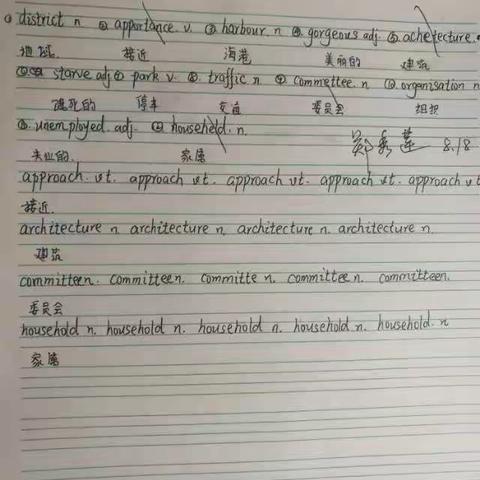 ① district n ② apportance. v. ③ harbour. n ④ gorgeous adj. ⑤ achetecture.
地域. 接近 海港 美丽的 建筑
starve adj park v. traffic n committee. n organisation n
饿死的 停车 交通 委员会 组织
unemployed. adj. household. n.
失业的. 家属 郑秀莲 8.18
approach. vt. approach vt. approach vt. approach vt. approach vt
接近.
architecture n architecture n. architecture n. architecture n.
建筑
committeen. committeen. committe n. committee n. committeen.
委员会
household n. household n. household n. household n. household. n
家属